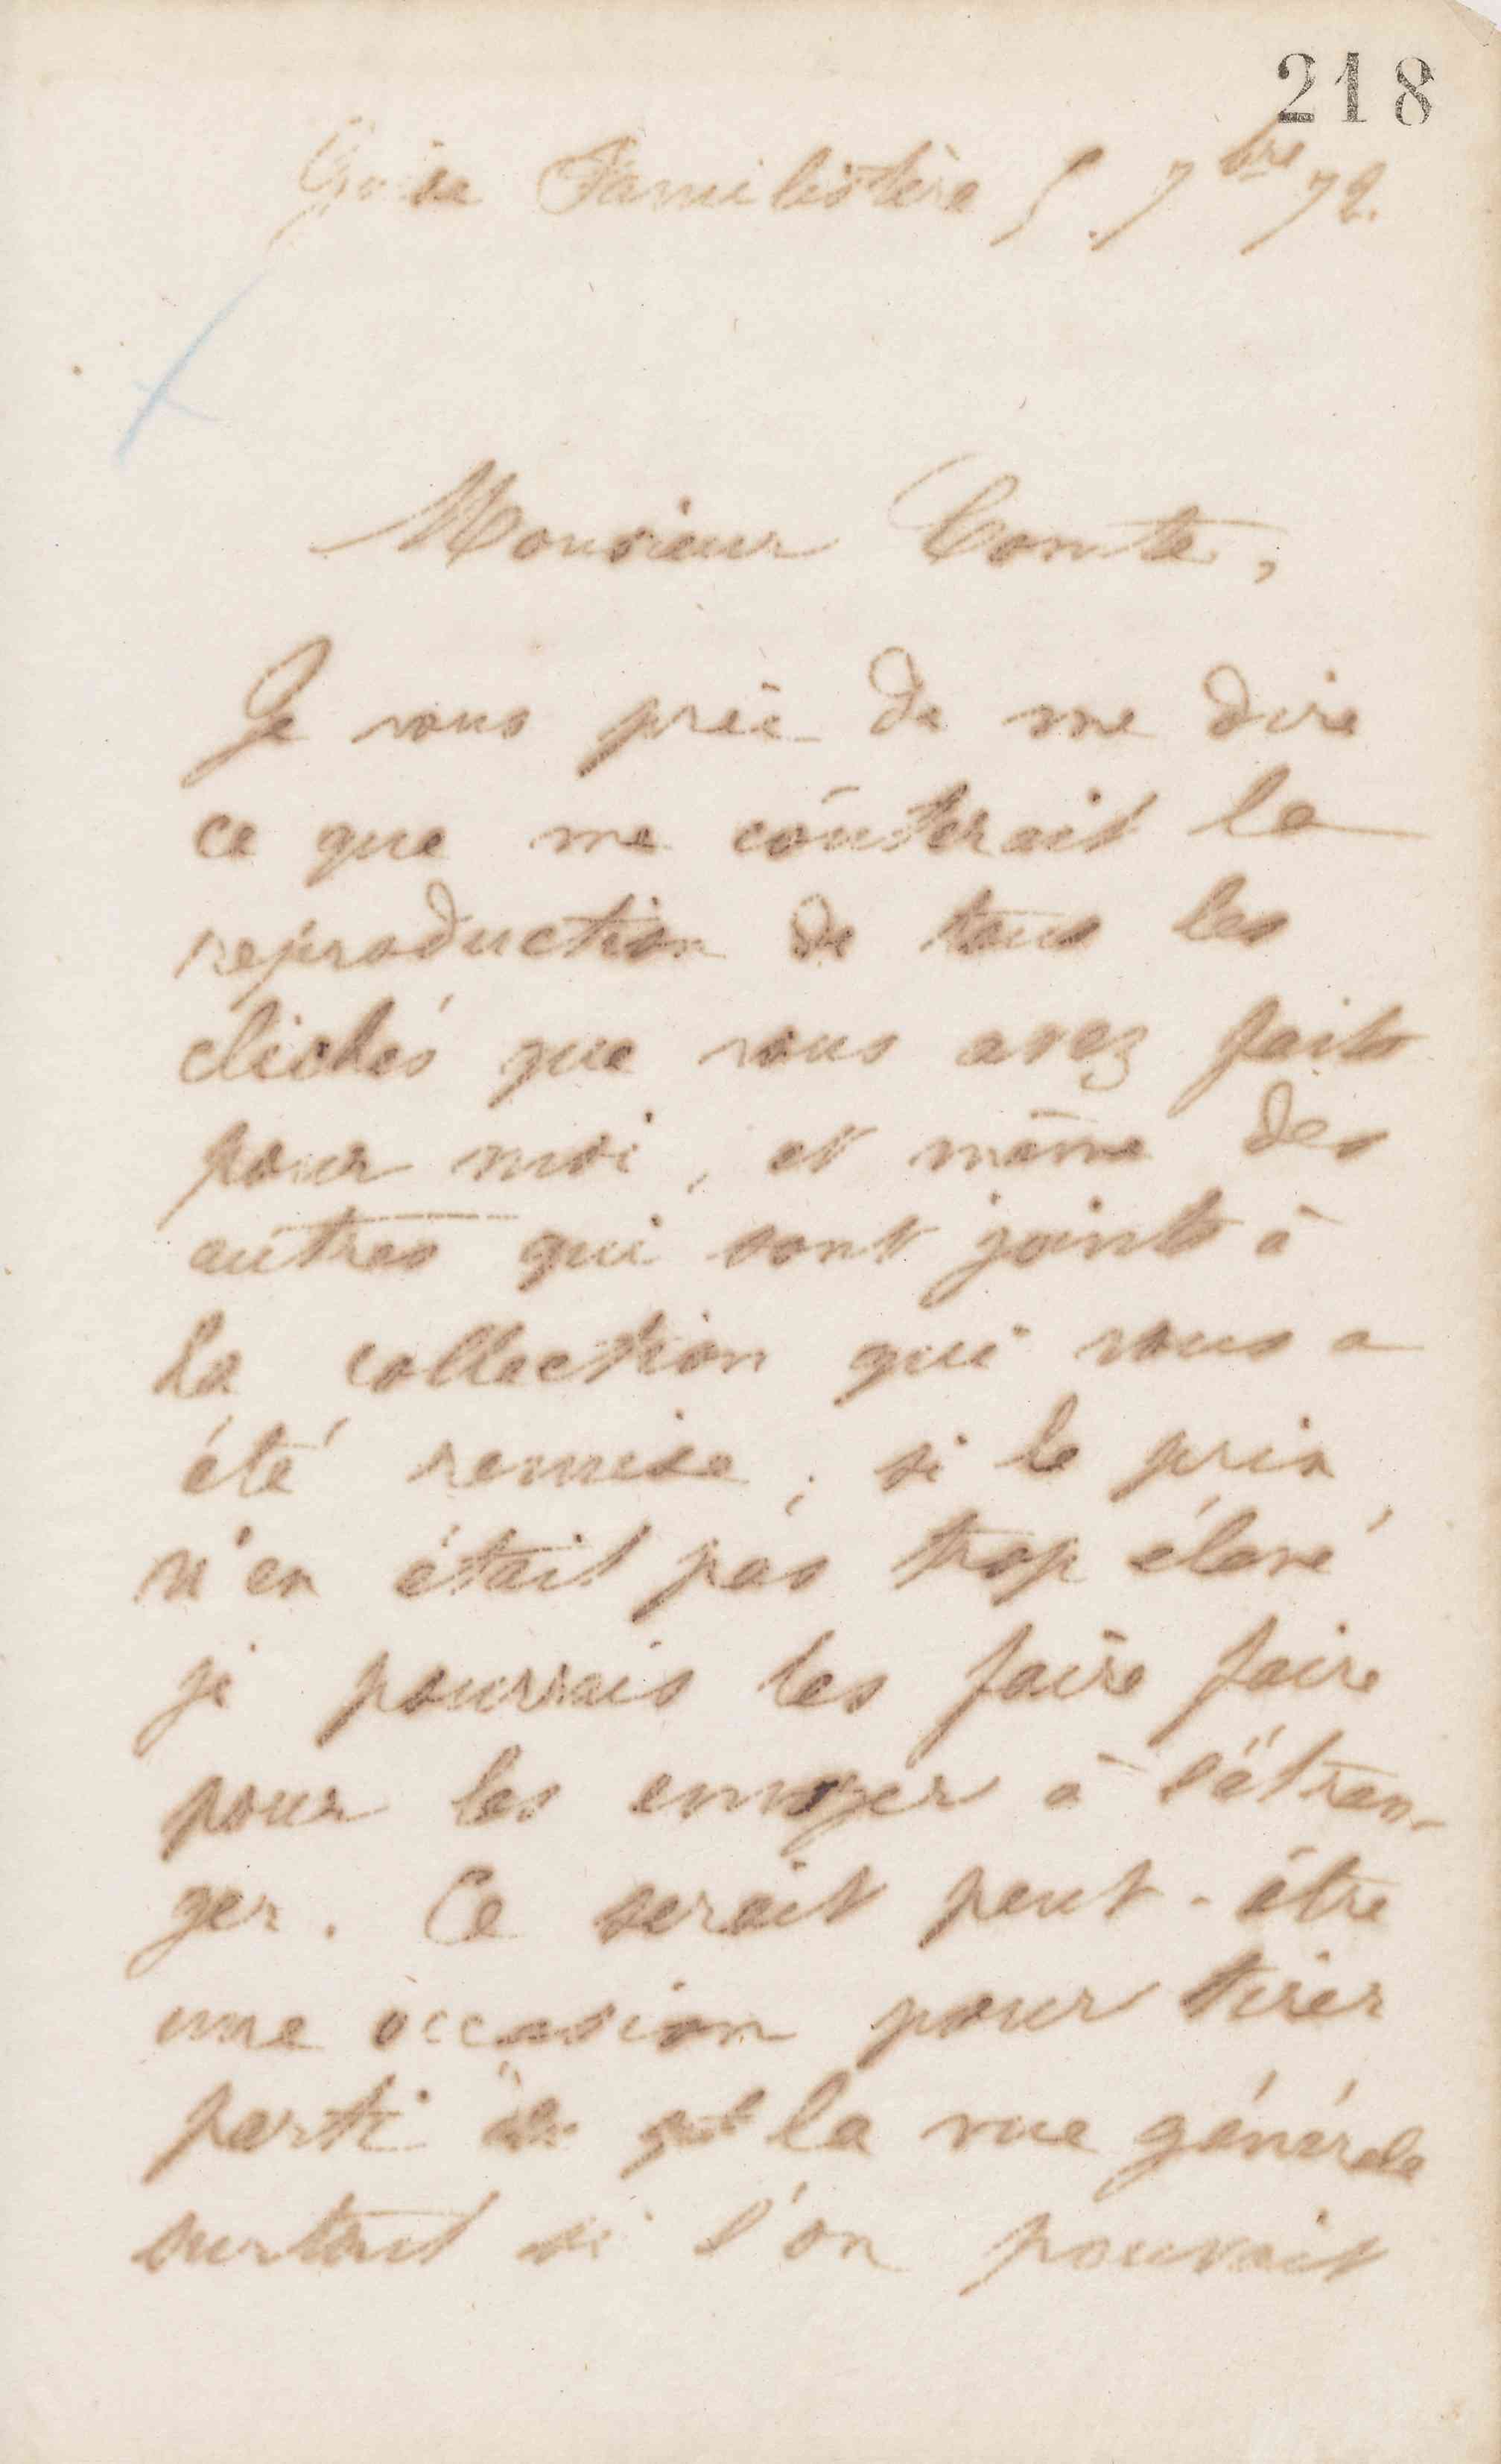 218
Guise Familistère 5. 7bre 72.
Monsieur Comte,
Je vous prie de me dire
ce que me coûterait la
reproduction de tous les
clichés que vous avez faits
pour moi, et même des
autres qui sont joints à
la collection qui vous a
été remise ; si le prix
n'en était pas trop élevé,
je pourrais les faire faire
pour les envoyer à l'étran-
ger. Ce serait peut-être
une occasion pour tirer
parti de la vue générale
surtout si l'on pouvait